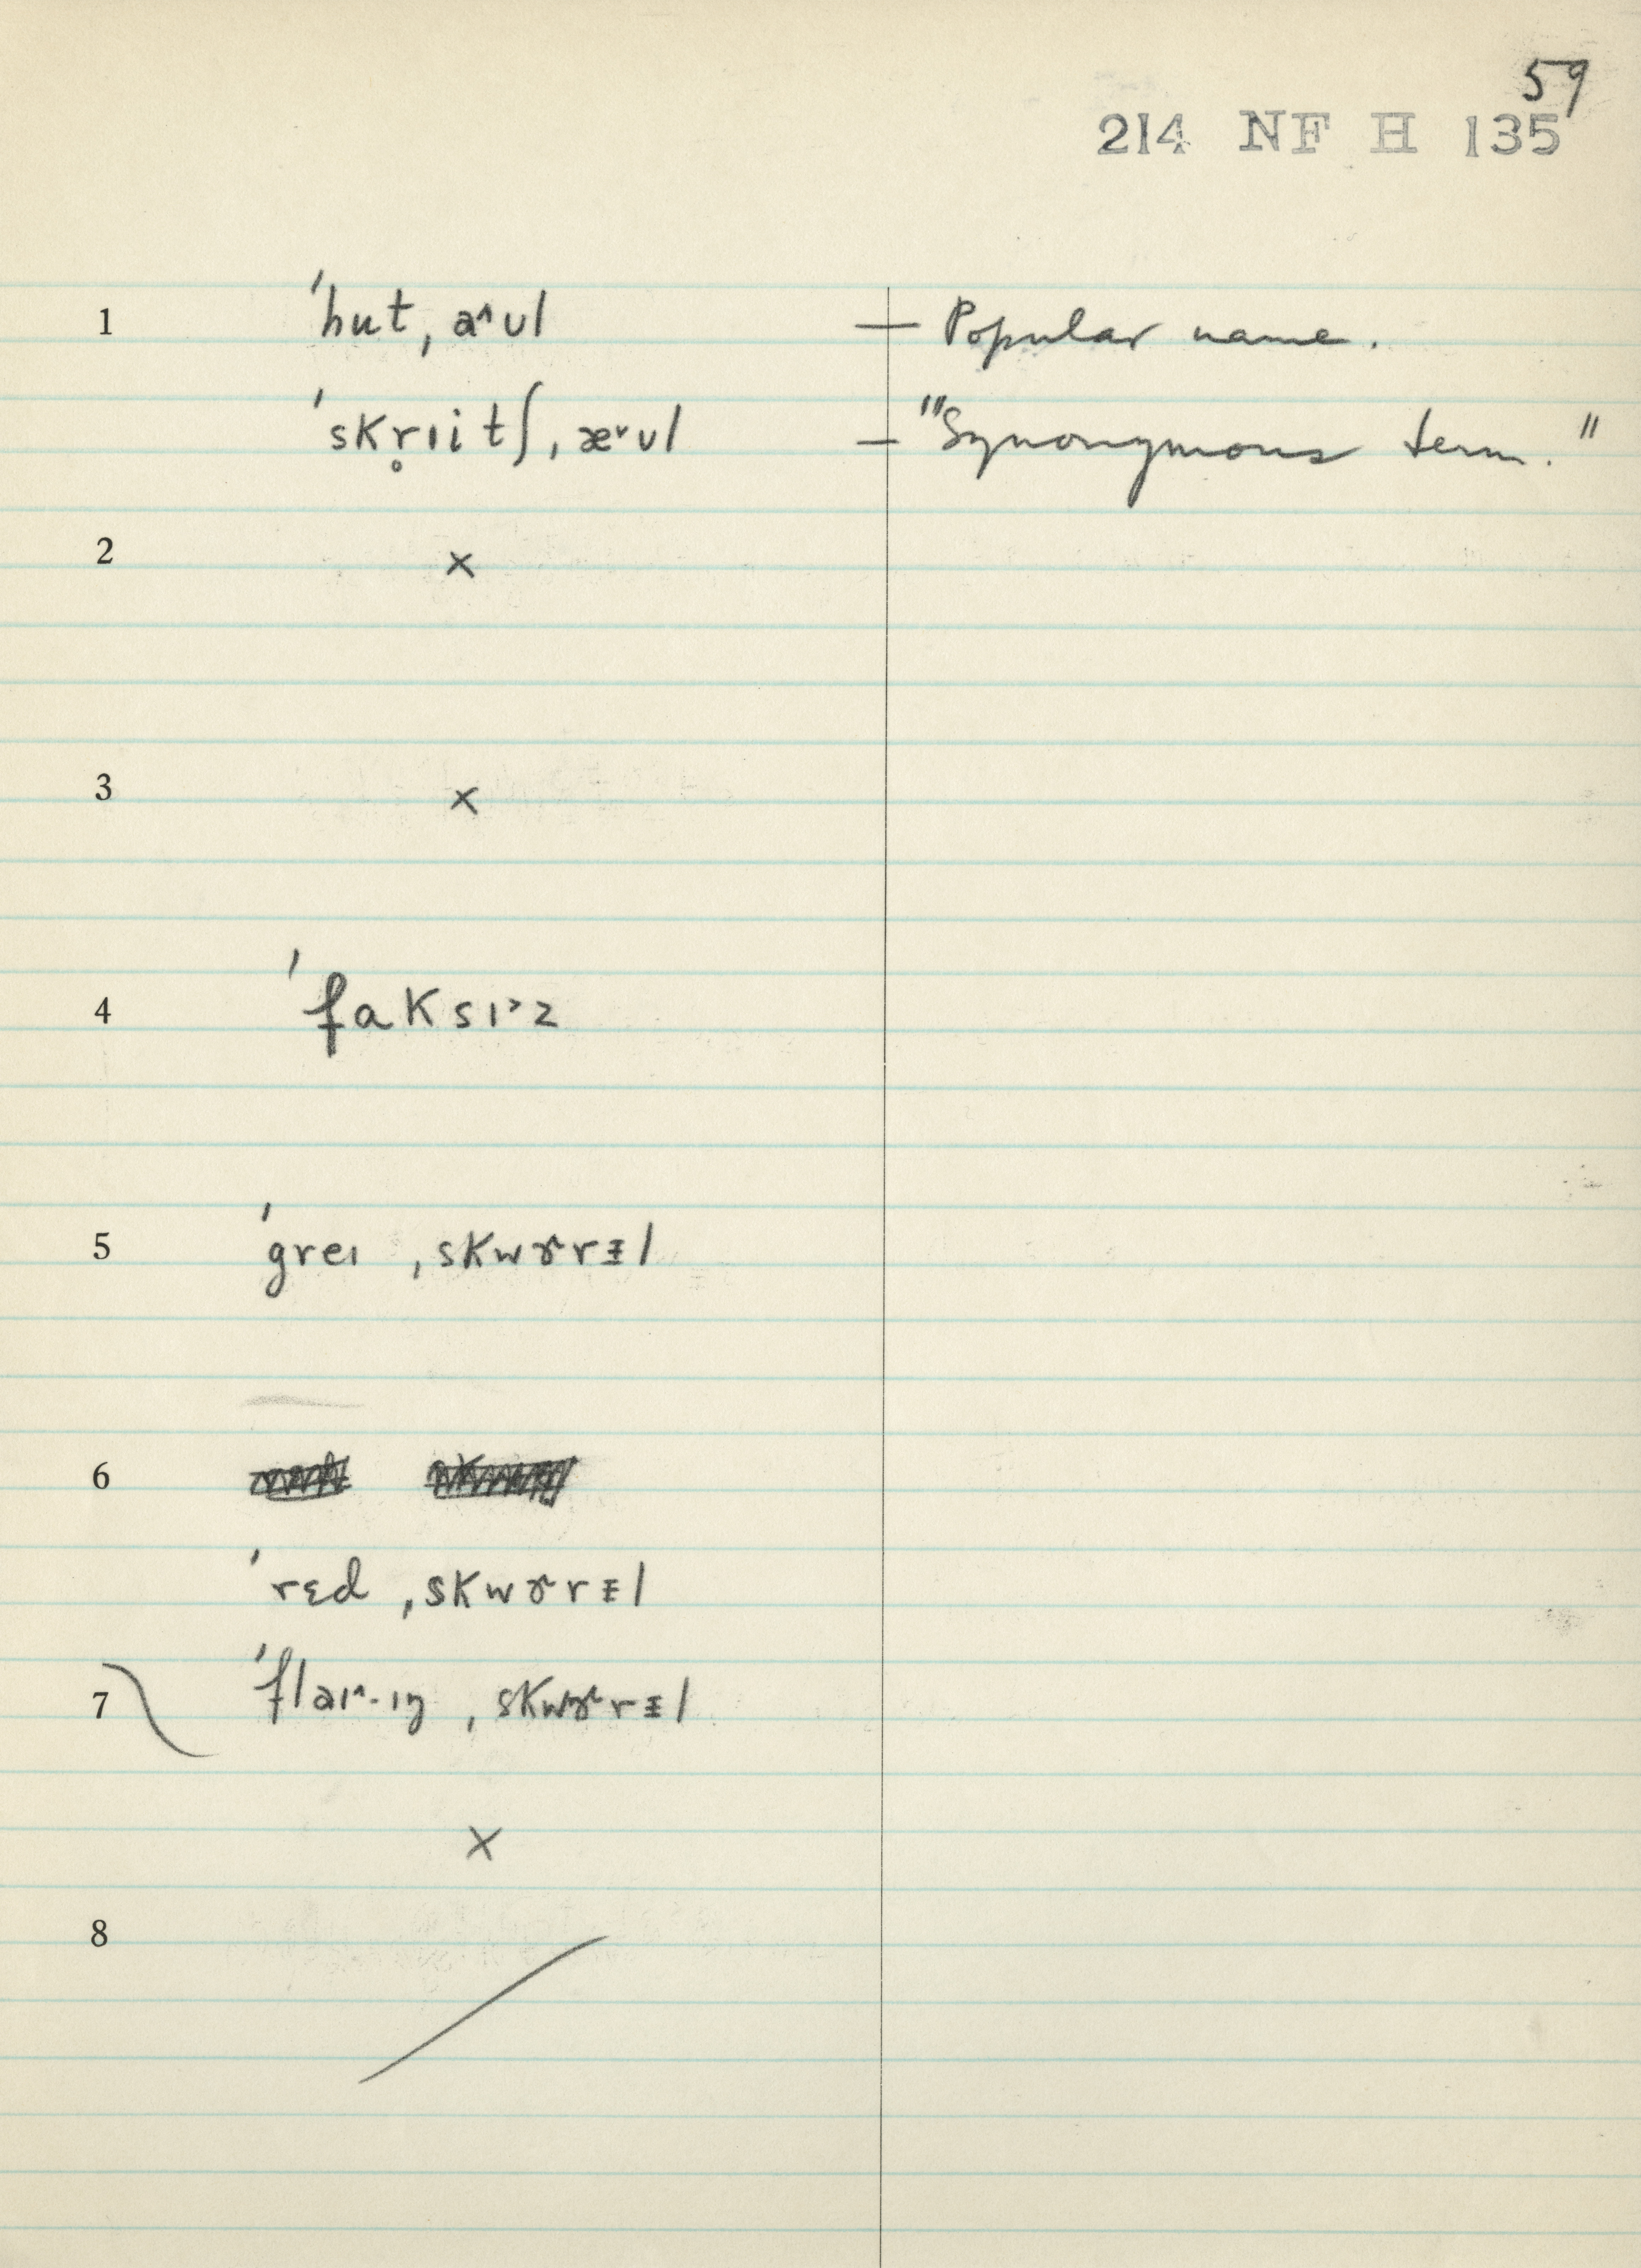 59
214 NF H 135
1 ˈhut ˌa˄ʊl — Popular name.
ˈskr̥ɪitʃ ˌæ˅ʊl — "Synonymous term."
2 ×
3 ×
4 ˈfaksɪ˃z
5 ˈgreɪ ˌskwɤrɨl
6
ˈrɛd ˌskwɤrɨl
7 ˈflaɪ˄·ɪŋ ˌskwɤrɨl
×
8